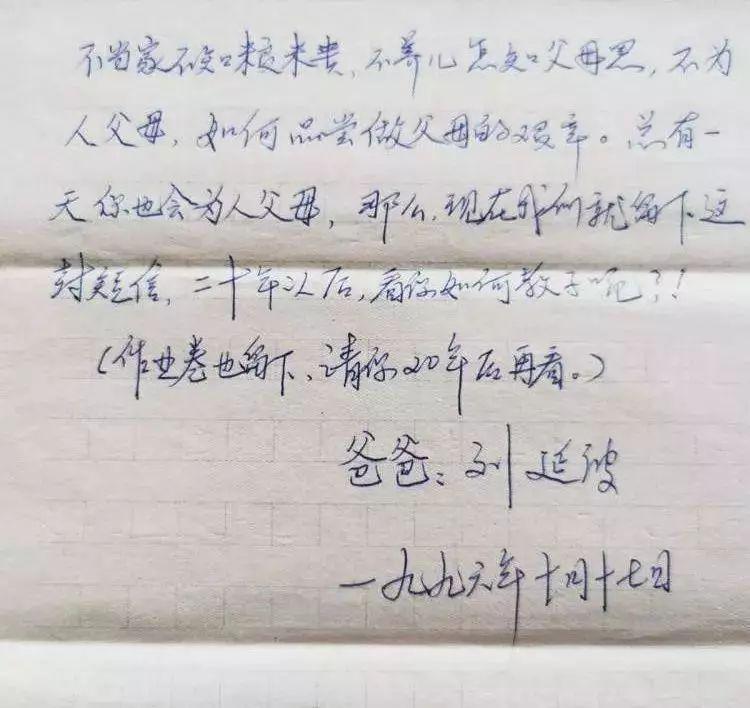 不当家不知柴米贵，不养儿怎知父母恩，不为
人父母，如何品尝做父母的艰辛。总有一
天你也会为人父母，那么，现在我们就留下这
封短信，二十年以后，看你如何教子呢？！
（作业卷也留下、请你20年后再看。）
爸爸：刘延波
一九九六年十月十七日